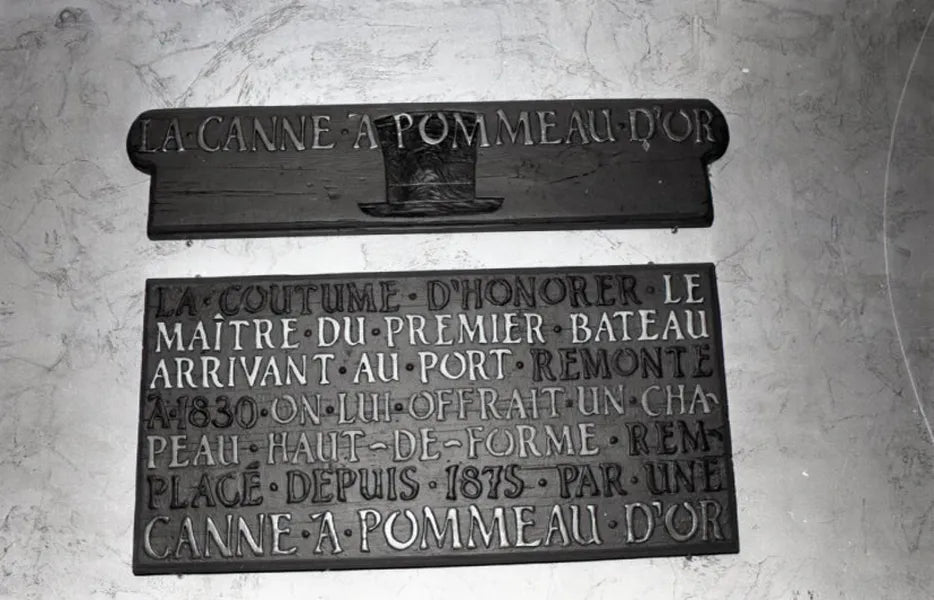 LA·CANNE·À·POMMEAU·D'OR
LA·COUTUME·D'HONORER·LE
MAÎTRE·DU·PREMIER·BATEAU
ARRIVANT·AU·PORT·REMONTE
À·1830·ON·LUI·OFFRAIT·UN·CHA-
PEAU·HAUT-DE-FORME·REM-
PLACÉ·DEPUIS·1875·PAR·UNE
CANNE·À·POMMEAU·D'OR